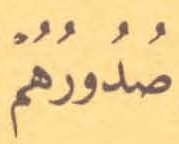 صُدُورُهُمْ